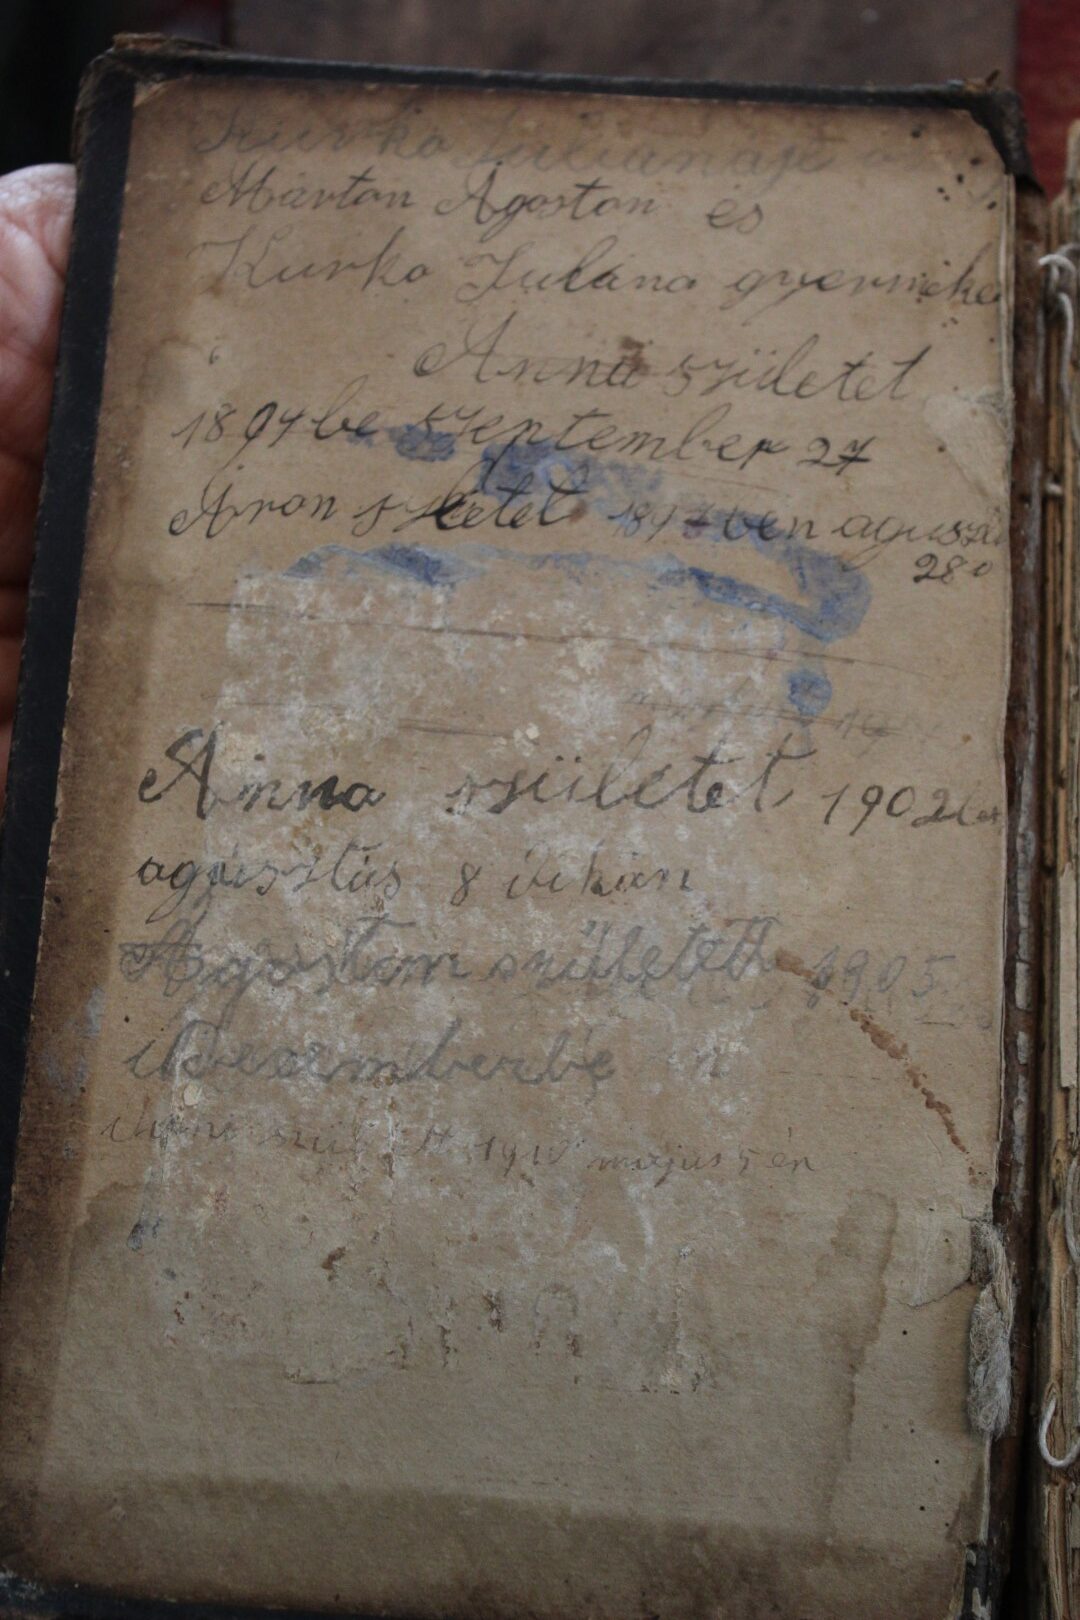 Kurko Julianaje
Márton Ágoston és
Kurko Juliána gyermeke
Anna születet
1894be szeptember 27
Áron szletet 1897ben aguszt
28
Anna születet 1902
agusztús 8 dikán
Agoston született 1905
Decemberbe
született 1910 május 5 én